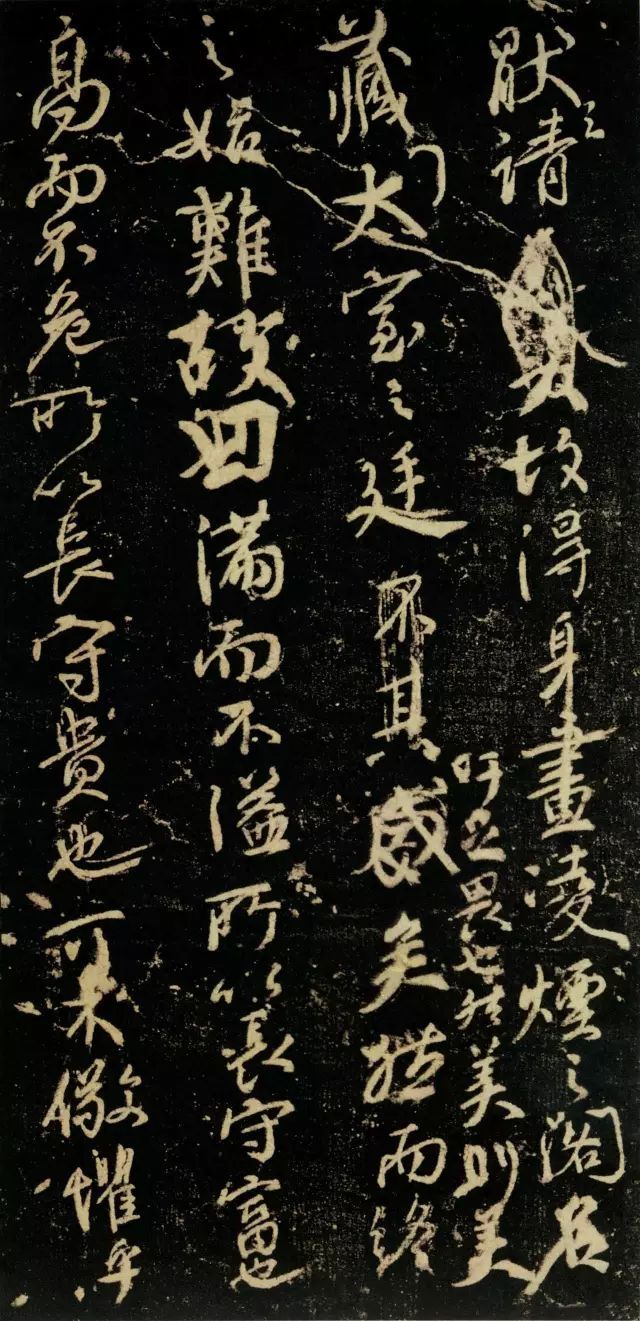 厭之請故得身畫凌煙之閣名
藏太室之廷不其盛矣然而終
吁足畏也然美則美
之始難故曰滿而不溢所以長守富也
高而不危所以長守貴也可不儆懼乎